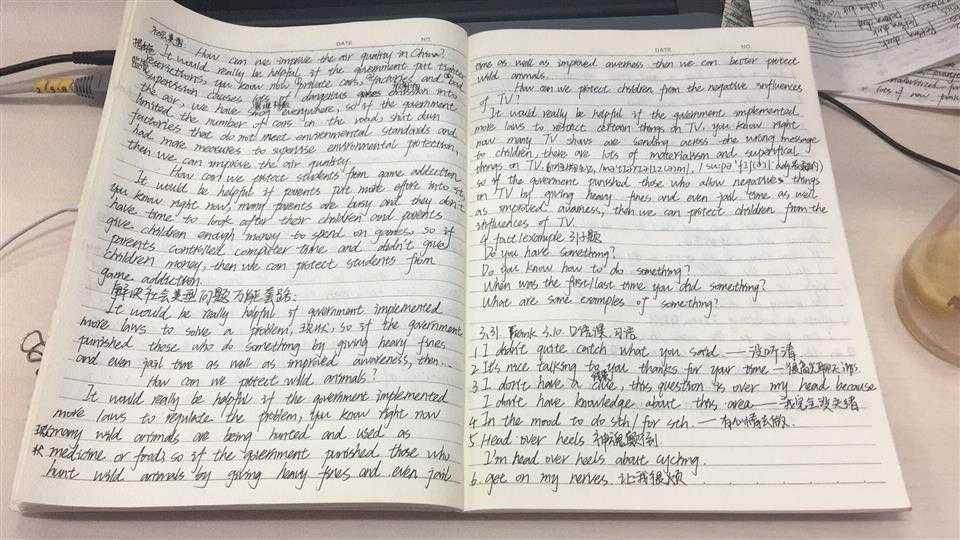 DATE NO.
How can we improve the air quality in China?
It would really be helpful if the government put tighter
restrictions, you know now private cars, factories and bad
supervision causes dangerous emission into
the air, we have smog everywhere, so if the government
limited the number of cars on the road, shut down
factories that do not meet environmental standards and
had more measures to supervise environmental protection,
then we can improve the air quality.
How can we protect students from game addiction
It would be helpful if parents put more effort into it,
you know right now many parents are busy and they don't
have time to look after their children and parents
give children enough money to spend on games, so if
parents controlled computer time and didn't give
children money, then we can protect students from
game addiction.
解决社会类型问题万能套路:
It would be really helpful if government implemented
more laws to solve a problem, 现状, so if the government
punished those who do something by giving heavy fines
and even jail time as well as improved awareness, then...
How can we protect wild animals?
It would be really helpful if the government implemented
more laws to regulate the problem, you know right now
现 many wild animals are being hunted and used as
状 medicine or food, so if the government punished those who
hunt wild animals by giving heavy fines and even jail
DATE NO.
time as well as improved awerness then we can better protect
wild animals.
How can we protect children from the negative influences
of TV?
It would really be helpful if the government implemented
more laws to restrict certain things on TV, you know right
now many TV shows are sending across the wrong message
to children, there are lots of materialism and superficial
things on TV.
so if the goverment punished those who allow negative things
on TV by giving heavy fines and even jail time as well
as improved awarness, then we can protect children from the
influences of TV.
4 fact/example 引子题
Do you have something?
Do you know how to do something?
When was the first/last time you did something?
What are some examples of something?
3.31. Frank 3.10. 口语课. 习语
1 I didn't quite catch what you said —— 没听清
2 It's nice talking to you thanks for your time —
3 I don't have a clue, this question is over my head because
I don't have knowledge about this area —— 我完全没头绪
4 In the mood to do sth/ for sth. —— 有心情去做.
5 Head over heels 神魂颠倒
I'm head over heels about cycling.
6. get on my nerves 让我很烦